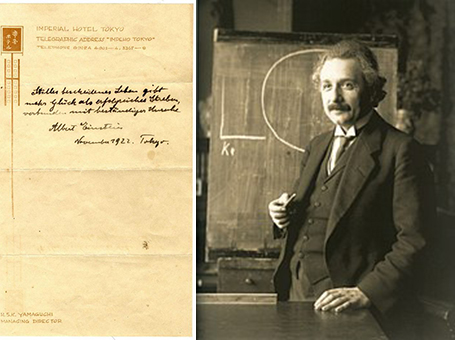 IMPERIAL HOTEL TOKYO
TELEGRAPHIC ADDRESS "IMPEHO TOKYO"
TELEPHONE GINZA
Stilles bescheidenes Leben gibt
mehr Glück als erfolgreiches Streben,
verbunden mit beständiger Unruhe.
Albert Einstein
November 1922. Tokyo.
YAMAGUCHI
MANAGING DIRECTOR